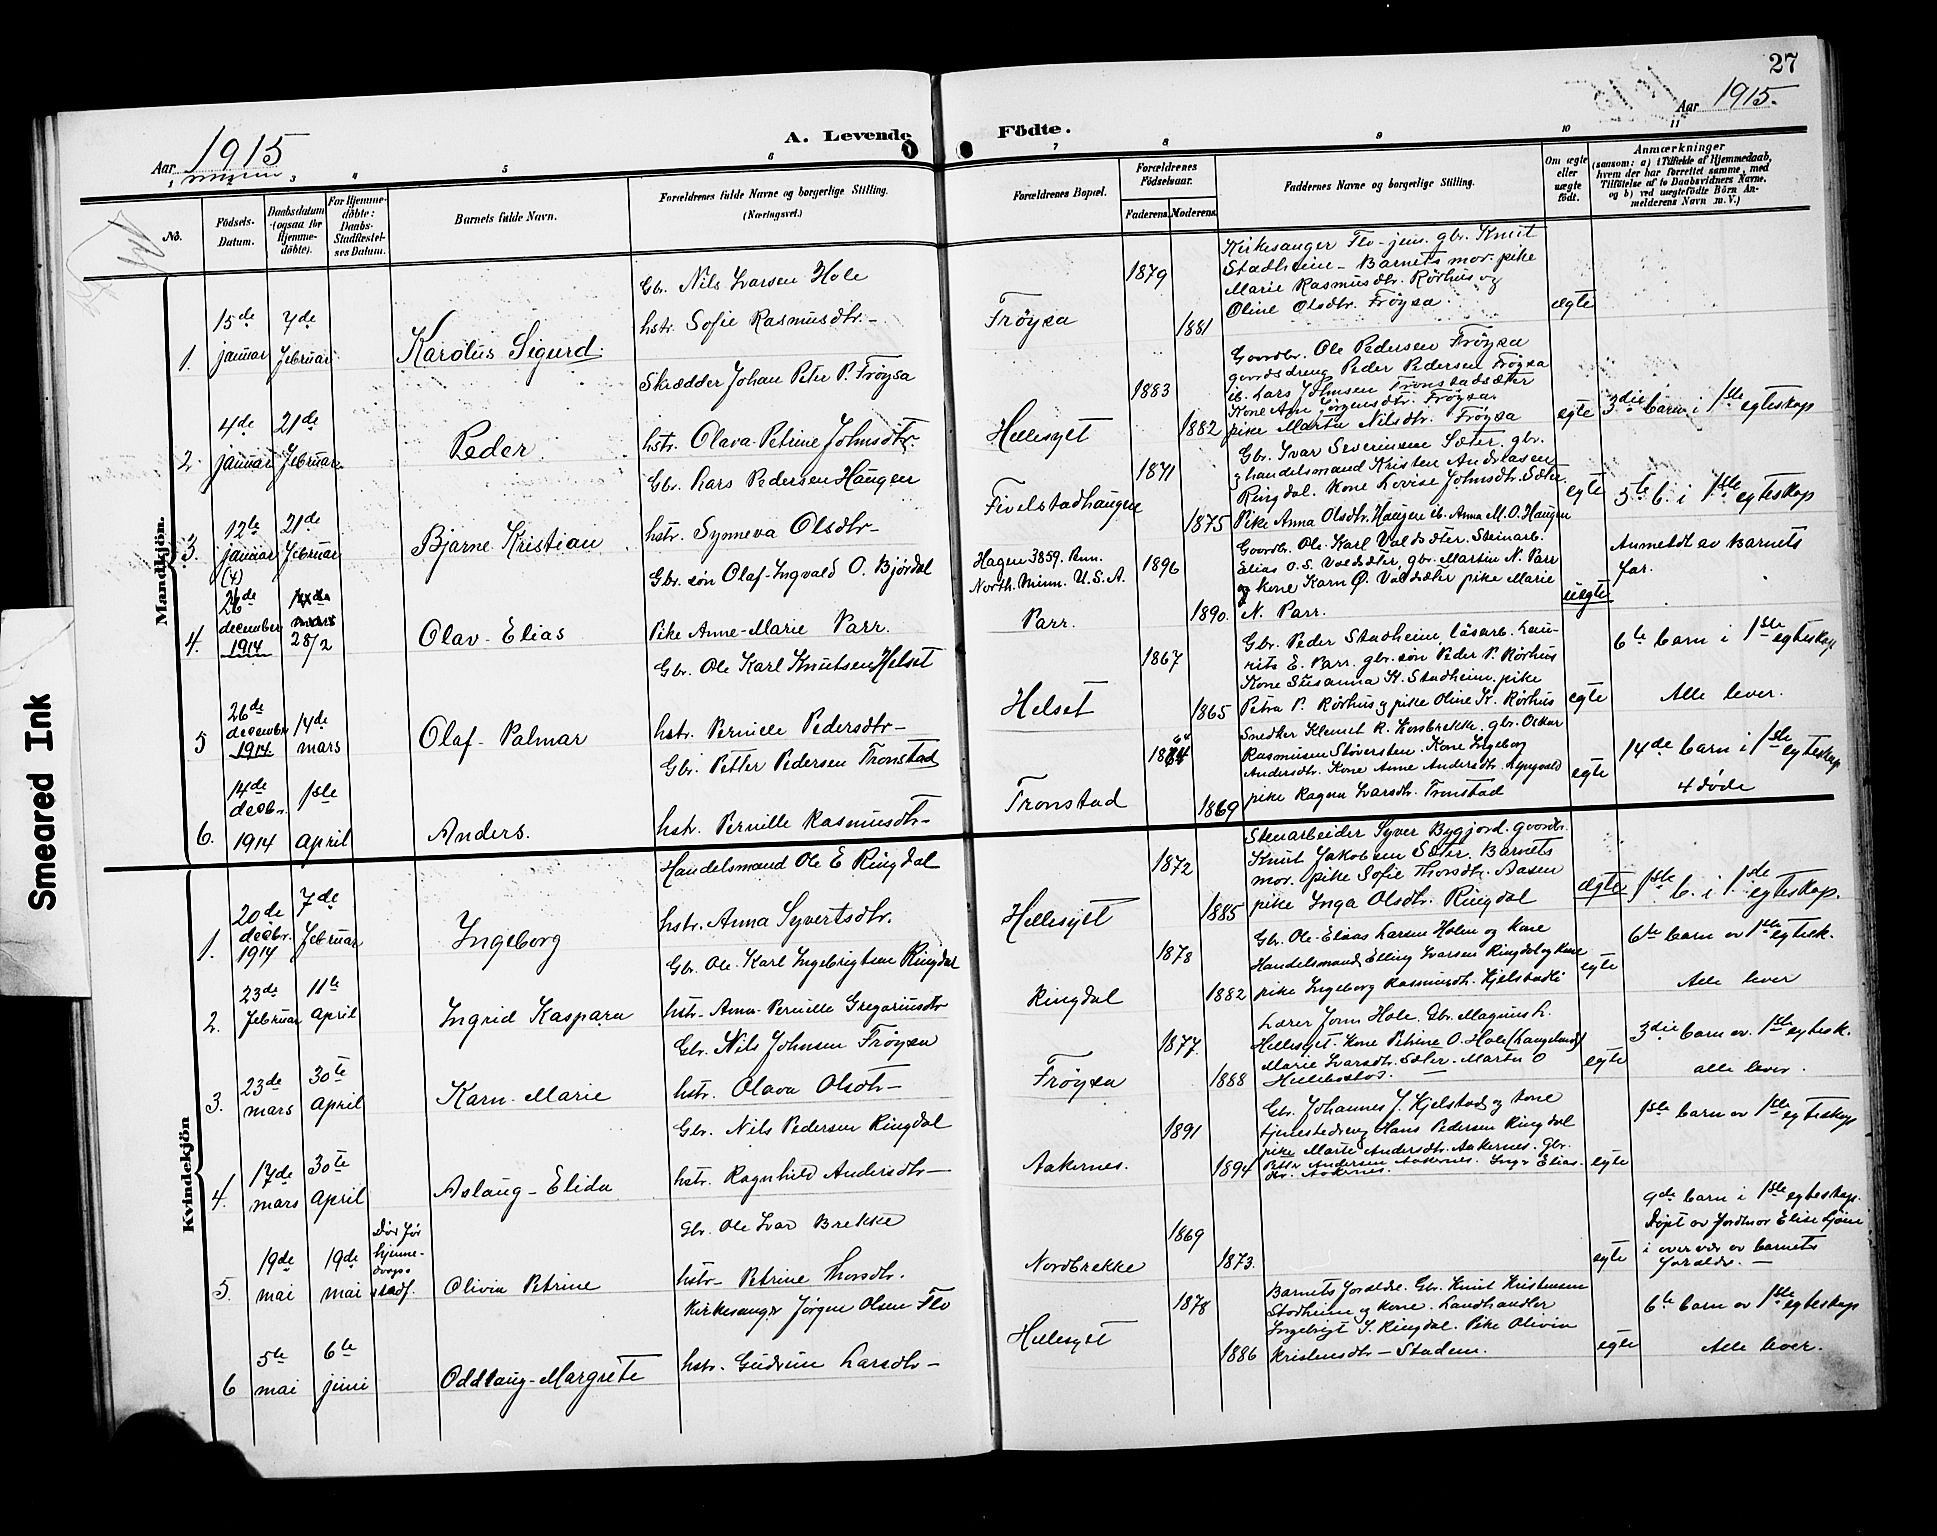 27
Aar 1915.
A. Levende Födte.
Aar 1915
1 3 4 5 6 7 8 9 10 11
No.
Födsels-Datum.
Daabsdatum (ogsaa for Hjemme-döbte).
For Hjemme-döbte: Daabs-Stadfæstel-ses Datum.
Barnets fulde Navn.
Forældrenes fulde Navne og borgerlige Stilling. (Næringsvei.)
Forældrenes Bopæl.
Forældrenes Födselsaar.
Faderens. Moderens.
Faddernes Navne og borgerlige Stilling.
Om ægte eller uægte födt.
Anmærkninger
(saasom: a) i Tilfælde af Hjemmedaab, hvem der har forrettet samme, med Tilföielse af to Daabsvidners Navne, og b) ved uægtefödte Börn An-melderens Navn m. V.)
Mandkjön.
1. 15de januar
7de februar
Karolus Sigurd.
Gbr. Nils Ivarsen Hole
hstr. Sofie Rasmusdtr.-
Fröysa
1879
1881
Kirkesanger Flo-jens. gbr. Knut
Stadheim - Barnets mor. pike
Marie Rasmusdtr. Rörhus og
Oline Olsdtr. Fröysa.
ægte
2. 4de januar
21de februar.
Peder.
Skrædder Johan Peter P. Fröysa
hstr. Olava-Petrine Johnsdtr.
Hellesylt
1883
1882
Goordbr. Ole Pedersen Fröysa
goordsdreng Peder Pedersen Fröysa
ib. Lars Johnsen Tronstadsæter
Kone Ane Jörgensdtr. Fröysa.
pike Marta Nilsdtr. Fröysa
egte
3die barn i 1ste egteskap
3. 12te januar
21de februar
Bjarne Kristian
Gbr. Lars Pedersen Haugen
hstr. Synneva Olsdtr-
Fivelstadhaugene
1871
1875
Gbr. Ivar Severinsen Sæter. gbr.
handelsmand Kristen Andreasen
Ringdal. Kone Lovise Johnsdtr. Sæter
Pike Anna Olsdtr. Haugen ib. Anna M. O. Haugen
egte
5te b. i 1ste egteskap
4. (4) 26de december 1914
28/2
Olav-Elias
Gbr. søn Olaf-Ingvald O. Björdal
Pike Anne-Marie Parr.
Hagen 3859. Ann.
North. Minn. U.S.A.
Parr.
1896
1890.
Goordbr. Ole-Karl Valdsæter. Steinarb.
Elias O.S. Valdsæter, gbr. Martin N. Parr
og kone Karn Ø. Valdsæter pike Marie
N. Parr.
uegte
Anmeldt av Barnets
far.
5 26de decembr 1914
14de mars
Olaf-Palmar
Gbr. Ole Karl Knutsen Helset
hstr. Pernille Pedersdtr-
Helset
1867
1865
Gbr. Peder Stadheim, läsarb. Lau-
rits E. Parr. gbr. søn Peder P. Rörhus
Kone Susanna K. Stadheim. pike
Petra P. Rörhus og pike Oline K. Rörhus
egte
6te barn i 1ste egteskap
Alle lever.
6. 14de decbr. 1914
1ste April
Anders.
Gbr. Petter Pedersen Tronstad
hstr. Pernille Rasmusdtr-
Tronstad
1869
Snedker Klemet R. Kornbrekke. gbr. Oskar
Rasmusen Støversten. Kone Ingeborg
Andersdtr. Kone Anne Andersdtr. Lyngvald
pike Ragna Ivarsdtr. Tronstad
egte
14de barn i 1ste egteskap
4 döde
Kvindekjön
1. 20de decbr. 1914
7de februar
Ingeborg
Handelsmand Ole E Ringdal
hstr. Anna Syvertsdtr.
Hellesylt
1872
1885
Stenarbeider Syver Bygjord. goordbr.
Knut Jakobsen Sæter. Barnets
mor. pike Sofie Thorsdtr. Aasen
pike Inga Olsdtr. Ringdal
ægte
1ste b. i 1ste egteskap.
2. 23de februar
11te april
Ingrid Kaspara
Gbr. Ole-Karl Ingebrigtsen Ringdal
hstr. Anna-Pernille Gregariusdtr
Ringdal
1878
1882
Gbr. Ole-Elias Larsen Holen og kone
Handelsmand Elling Ivarsen Ringdal og kone
pike Ingeborg Rasmusdtr. Kjelstadli
egte
6te barn av 1ste egtesk.
Alle lever
3. 23de mars
30te april
Karn-Marie
Gbr. Nils Johnsen Fröysa
hstr. Olava Olsdtr-
Fröysa
1877.
1888
Lærer Jonn Hole. Gbr. Magnus L.
Hellesylt. Kone Petrine O. Hole (Langeland)
Marie Ivarsdtr. Sæter. - Marta O
egte
3die barn av 1ste egtesk.
alle lever.
4. 17de mars
30te april
Aslaug-Elida
Gbr. Nils Pedersen Ringdal
hstr. Ragnhild Andersdtr-
Aakernes.
1891
1894
Gbr. Johannes J. Kjelstad og kone
tjenestedreng Hans Pedersen Ringdal
pike Marie Andersdtr. Aakernes. Gbr.
Petter Andersen Aakernes. Inga Elias-
dtr. Aakernes.
egte
1ste barn av 1ste egteskap
5. 19de mai
19de mai
Död før
hjemme-
daaps-
stadf.
Olivia Petrine
Gbr. Ole Ivar Brekke
hstr- Petrine Thorsdtr.
Nordbrekke
1869
1873.
egte
9de barn i 1ste egteskap.
Döpt av jordmor Elise Gjøne
i overvær av barnets
foraldre. -
6 5te mai
6te juni
Oddlaug-Margrete
Kirkesanger Jörgen Olsen Flo
hstr. Gudrun Larsdtr-
Hellesylt
1878
1886
Barnets foraldre. Gbr. Knut Kristensen
Stadheim og kone. Landhandler
Ingebrigt S. Ringdal. Pike Olivia
Kristensdtr - Stadem.
egte
6te barn av 1ste egteskap
Alle lever.
Smeared Ink